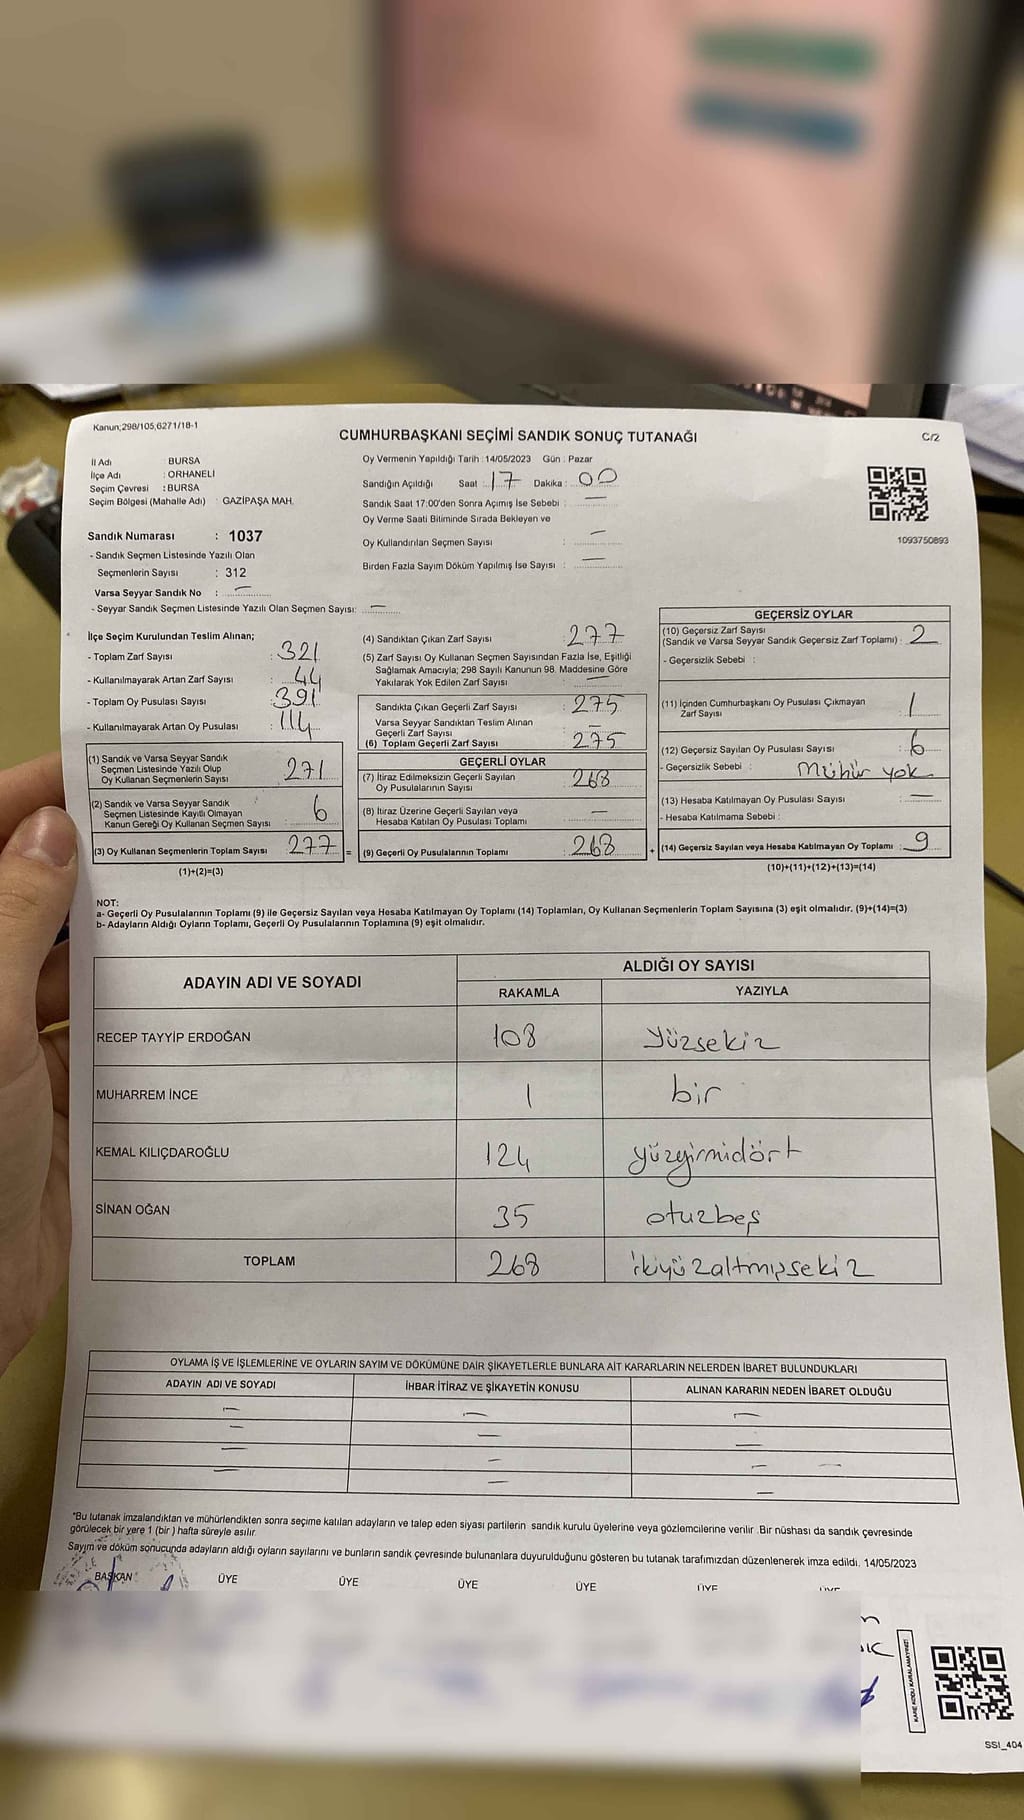 Kanun;298/105,6271/18-1
CUMHURBAŞKANI SEÇİMİ SANDIK SONUÇ TUTANAĞI
C/2
İl Adı : BURSA
İlçe Adı : ORHANELİ
Seçim Çevresi : BURSA
Seçim Bölgesi (Mahalle Adı) : GAZİPAŞA MAH.
Oy Vermenin Yapıldığı Tarih :14/05/2023 Gün : Pazar
Sandığın Açıldığı Saat : 17 Dakika : 00
Sandık Saat 17:00'den Sonra Açımış İse Sebebi : —
Oy Verme Saati Bitiminde Sırada Bekleyen ve
Oy Kullandırılan Seçmen Sayısı : —
Birden Fazla Sayım Döküm Yapılmış İse Sayısı : —
1093750893
Sandık Numarası : 1037
- Sandık Seçmen Listesinde Yazılı Olan
Seçmenlerin Sayısı : 312
Varsa Seyyar Sandık No : —
- Seyyar Sandık Seçmen Listesinde Yazılı Olan Seçmen Sayısı: —
İlçe Seçim Kurulundan Teslim Alınan;
- Toplam Zarf Sayısı : 321
- Kullanılmayarak Artan Zarf Sayısı : 44
- Toplam Oy Pusulası Sayısı : 391
- Kullanılmayarak Artan Oy Pusulası : 114
(1) Sandık ve Varsa Seyyar Sandık
Seçmen Listesinde Yazılı Olup
Oy Kullanan Seçmenlerin Sayısı : 271
(2) Sandık ve Varsa Seyyar Sandık
Seçmen Listesinde Kayıtlı Olmayan
Kanun Gereği Oy Kullanan Seçmen Sayısı : 6
(3) Oy Kullanan Seçmenlerin Toplam Sayısı : 277 =
(1)+(2)=(3)
(4) Sandıktan Çıkan Zarf Sayısı : 277
(5) Zarf Sayısı Oy Kullanan Seçmen Sayısından Fazla İse, Eşitliği
Sağlamak Amacıyla; 298 Sayılı Kanunun 98. Maddesine Göre
Yakılarak Yok Edilen Zarf Sayısı : —
Sandıkta Çıkan Geçerli Zarf Sayısı : 275
Varsa Seyyar Sandıktan Teslim Alınan
Geçerli Zarf Sayısı : —
(6) Toplam Geçerli Zarf Sayısı : 275
GEÇERLİ OYLAR
(7) İtiraz Edilmeksizin Geçerli Sayılan
Oy Pusulalarının Sayısı : 268
(8) İtiraz Üzerine Geçerli Sayılan veya
Hesaba Katılan Oy Pusulası Toplamı : —
(9) Geçerli Oy Pusulalarının Toplamı : 268 +
GEÇERSİZ OYLAR
(10) Geçersiz Zarf Sayısı
(Sandık ve Varsa Seyyar Sandık Geçersiz Zarf Toplamı) : 2
- Geçersizlik Sebebi :
(11) İçinden Cumhurbaşkanı Oy Pusulası Çıkmayan
Zarf Sayısı : 1
(12) Geçersiz Sayılan Oy Pusulası Sayısı : 6
- Geçersizlik Sebebi : Mühür yok
(13) Hesaba Katılmayan Oy Pusulası Sayısı : —
- Hesaba Katılmama Sebebi :
(14) Geçersiz Sayılan veya Hesaba Katılmayan Oy Toplamı : 9
(10)+(11)+(12)+(13)=(14)
NOT:
a- Geçerli Oy Pusulalarının Toplamı (9) ile Geçersiz Sayılan veya Hesaba Katılmayan Oy Toplamı (14) Toplamları, Oy Kullanan Seçmenlerin Toplam Sayısına (3) eşit olmalıdır. (9)+(14)=(3)
b- Adayların Aldığı Oyların Toplamı, Geçerli Oy Pusulalarının Toplamına (9) eşit olmalıdır.
ADAYIN ADI VE SOYADI
ALDIĞI OY SAYISI
RAKAMLA YAZIYLA
RECEP TAYYİP ERDOĞAN 108 yüzsekiz
MUHARREM İNCE 1 bir
KEMAL KILIÇDAROĞLU 124 yüzyirmidört
SİNAN OĞAN 35 otuzbeş
TOPLAM 268 ikiyüzaltmışsekiz
OYLAMA İŞ VE İŞLEMLERİNE VE OYLARIN SAYIM VE DÖKÜMÜNE DAİR ŞİKAYETLERLE BUNLARA AİT KARARLARIN NELERDEN İBARET BULUNDUKLARI
ADAYIN ADI VE SOYADI İHBAR İTİRAZ VE ŞİKAYETİN KONUSU ALINAN KARARIN NEDEN İBARET OLDUĞU
— — —
— — —
— — — —
— — —
*Bu tutanak imzalandıktan ve mühürlendikten sonra seçime katılan adayların ve talep eden siyasi partilerin sandık kurulu üyelerine veya gözlemcilerine verilir .Bir nüshası da sandık çevresinde
görülecek bir yere 1 (bir ) hafta süreyle asılır.
Sayım ve döküm sonucunda adayların aldığı oyların sayılarını ve bunların sandık çevresinde bulunanlara duyurulduğunu gösteren bu tutanak tarafımızdan düzenlenerek imza edildi. 14/05/2023
BAŞKAN ÜYE ÜYE ÜYE ÜYE ÜYE ÜYE
KARE KODU KARALAMAYINIZ!
SSI_404